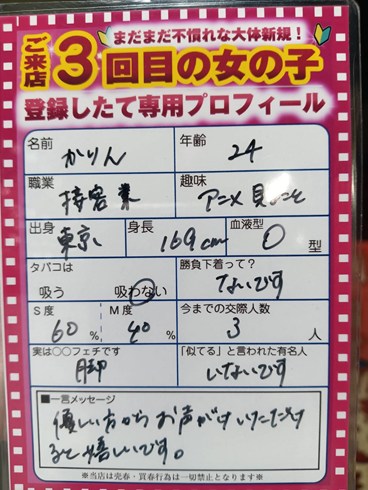 まだまだ不慣れな大体新規！
ご来店3回目の女の子
登録したて専用プロフィール
名前 かりん 年齢 24
職業 接客業 趣味 アニメ見ること
出身 東京 身長 169cm 血液型 O 型
タバコは 勝負下着って？
吸う 吸わない ないです
S度 M度 今までの交際人数
60% 40% 3人
実は○○フェチです 「似てる」と言われた有名人
脚 いないです
■一言メッセージ
優しい方からお声がけいただけ
ると嬉しいです。
※当店は売春・買春行為は一切禁止となります※